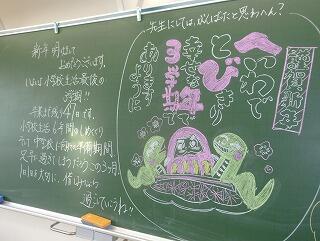 先生にしては、がんばったと思わへん?
謹賀新年
へつわて
とびきり
幸せな
3学期で
ありますように
新年 明けまして
おめでとうございます。
いよいよ 小学校生活最後の
学期!!
卒業まで残り47日です。
小学校生活6年間のしめくくり
そして 中学校に向けての準備期間
又 千 過ぎてしまうだろうこの3ヶ月。
1日1日を大切に、惜しみながら
過ごしていこうね!!